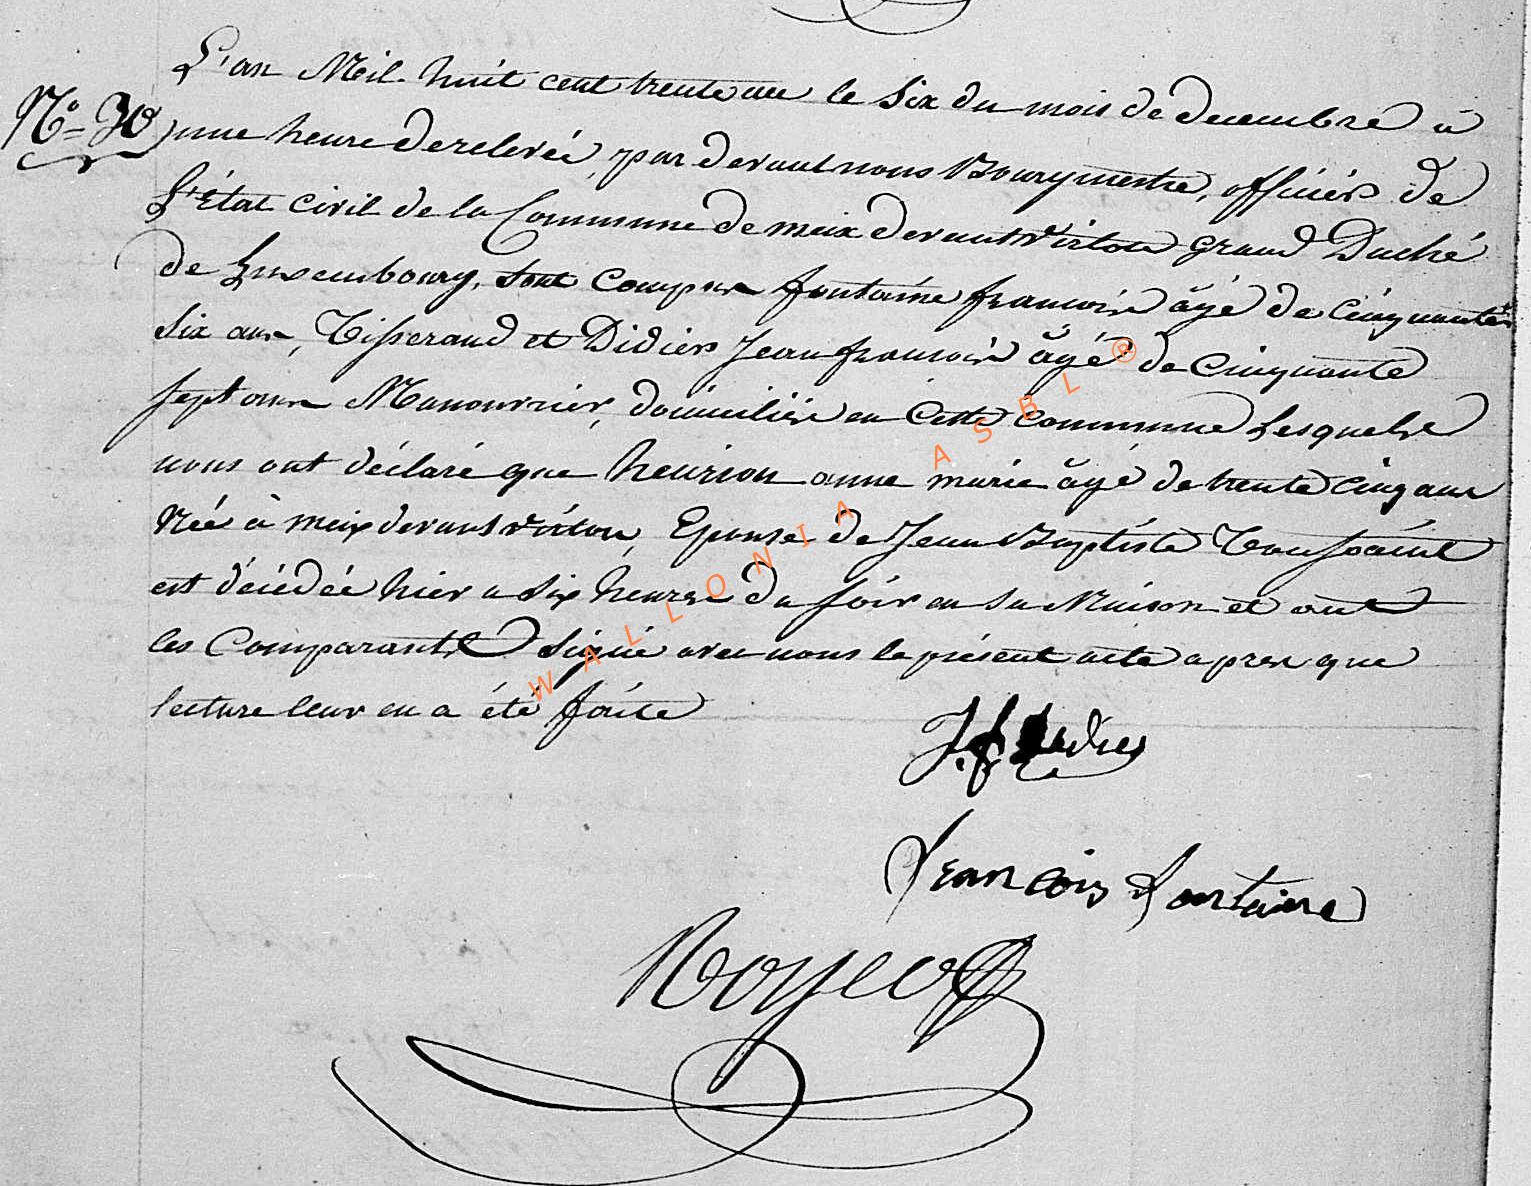 L'an Mil huit cent trente un le Six du mois de decembre à
N° 30 une heure de relevée, par devant nous Bourgmestre, officier de
L'État civil de la Commune de meix devant virton grand Duché
de Luxembourg, sont comparu fontaine francois âgé de cinquante
Six ans, Tisserand et Didier Jean francois âgé de cinquante
sept ans Manouvrier, domiciliés en cette commune Lesquels
nous ont déclaré que henrion anne marie âgé de trente cinq ans
Née à meix devant virton, Epouse de Jean Baptiste Toussaint
est décédée hier a six heures du soir en sa Maison et ont
les Comparants Signé avec nous le présent acte apres que
lecture leur en a été faite
J. f. Didier
francois fontaine
WALLONIA ASBL ®